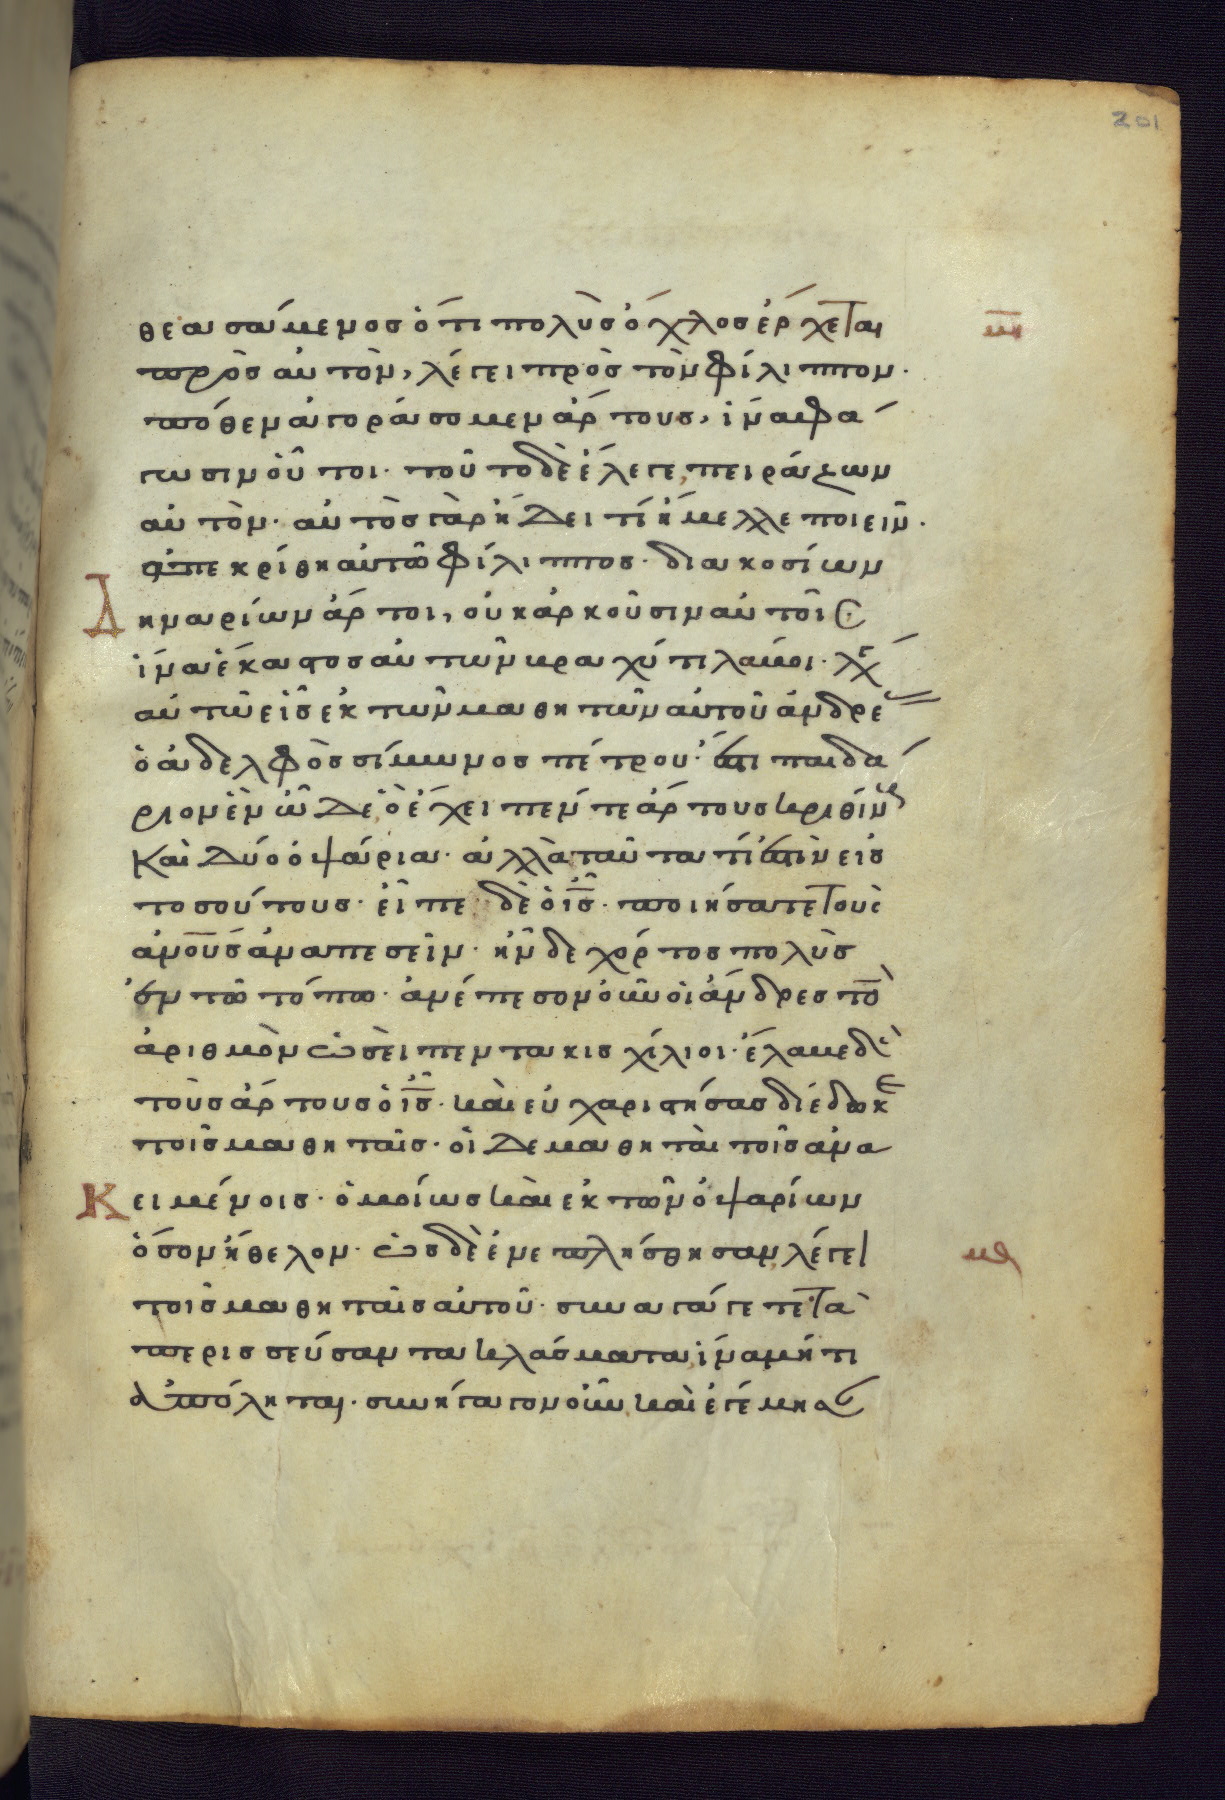 201
θεασάμενος ὅτι πολὺς ὄχλος ἔρχεται
πρὸς αὐτὸν, λέγει πρὸς τὸν φίλιππον·
πόθεν ἀγοράσομεν ἄρτους, ἵνα φά
γωσιν οὗτοι· τοῦτο δὲ ἔλεγε, πειράζων
αὐτὸν· αὐτὸς γὰρ ἤδει τί ἤμελλε ποιεῖν·
ἀπεκρίθη αὐτῶ φίλιππος· διακοσίων
δηναρίων ἄρτοι, οὐκ ἀρκοῦσιν αὐτοῖς
ἵνα ἕκαστος αὐτῶν βραχύ τι λάβοι· λέγ
αὐτῶ εἷς ἐκ τῶν μαθητῶν αὐτοῦ ἀνδρέ
ὁ ἀδελφὸς σίμωνος πέτρου· ἔστι παιδά
ριον ἓν ὧδε, ὃ ἔχει πέντε ἄρτους κριθίν
καὶ δύο ὀψάρια· ἀλλὰ ταῦτα τί ἐστιν εἰς
τοσούτους· εἶπε δὲ ὁ ις· ποιήσατε τοὺς
ανους ἀναπεσεῖν· ἦν δε χόρτος πολὺς
ἐν τῶ τόπω· ἀνέπεσον οὖν οἱ ἄνδρες το
ἀριθμὸν ὡσεὶ πεντακισχίλιοι· ἔλαβε δὲ
τοὺς ἄρτους ὁ ις· καὶ εὐχαριστήσας διέδωκε
τοῖς μαθηταῖς· οἱ δε μαθηταὶ τοῖς ἀνα
κειμένοις· ὁμοίως καὶ ἐκ τῶν ὀψαρίων
ὅσον ἤθελον· ὡς δὲ ἐνεπλήσθησαν, λέγει
τοῖς μαθηταῖς αὐτοῦ· συναγάγετε τὰ
περισσεύσαντα κλάσματα, ἵνα μή τι
ἀπόληται· συνήγαγον οὖν καὶ ἐγέμισα